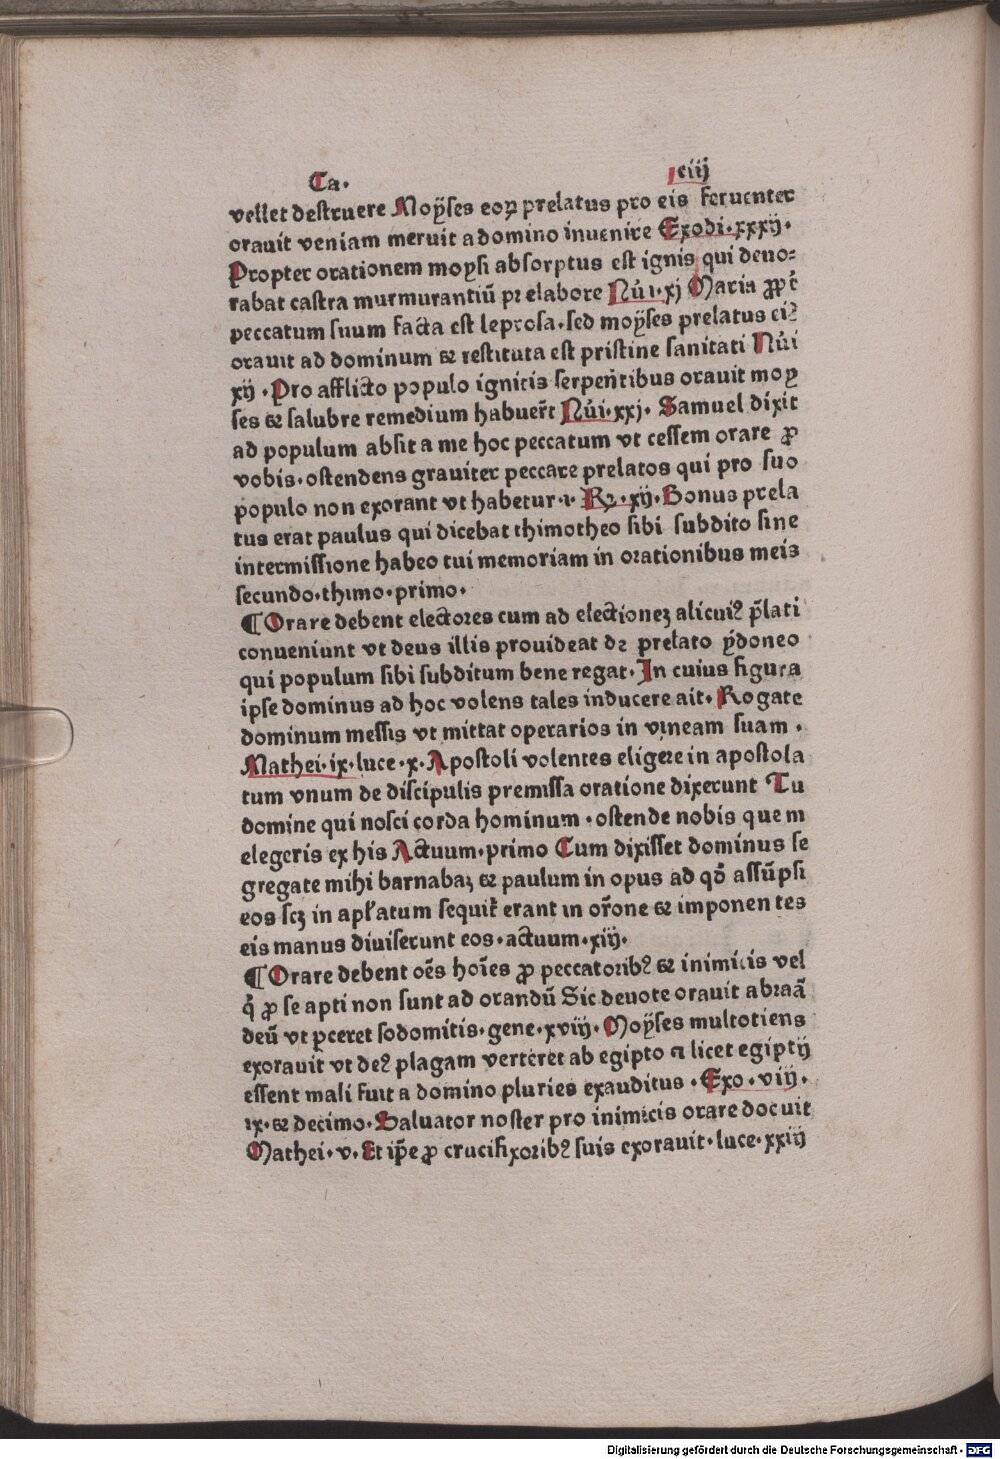 Ca. ciij
vellet destruere Moyses eoꝝ prelatus pro eis feruenter
orauit veniam meruit a domino inuenire Exodi.xxxij.
Propter orationem moysi absorptus est ignis qui deuo⸗
rabat castra murmurantiū pre labore Nūi.xj Maria ꝓpt̄
peccatum suum facta est leprosa.sed moyses prelatus eiꝰ
orauit ad dominum ⁊ restituta est pristine sanitati Nūi
xij.Pro afflicto populo ignitis serpentibus orauit moy
ses ⁊ salubre remedium habuer̄t Nūi.xxj. Samuel dixit
ad populum absit a me hoc peccatum vt cessem orare ꝓ
vobis.ostendens grauiter peccare prelatos qui pro suo
populo non exorant vt habetur.i.Rꝫ.xij.Bonus prela
tus erat paulus qui dicebat thimotheo sibi subdito sine
intermissione habeo tui memoriam in orationibus meis
secundo.thimo.primo.
¶Orare debent electores cum ad electionez alicuiꝰ p̄lati
conueniunt vt deus illis prouideat de prelato ydoneo
qui populum sibi subditum bene regat.In cuius figura
ipse dominus ad hoc volens tales inducere ait.Rogate
dominum messis vt mittat operarios in vineam suam.
Mathei.ix.luce.x.Apostoli volentes eligere in apostola
tum vnum de discipulis premissa oratione dixerunt Tu
domine qui nosci corda hominum.ostende nobis quem
elegeris ex his Actuum.primo Cum dixisset dominus se
gregate mihi barnabaz ⁊ paulum in opus ad qđ assūpsi
eos scz in apl̄atum sequit̄ erant in or̄one ⁊ imponentes
eis manus diuiserunt eos.actuum.xiij.
¶Orare debent oēs hoīes ꝓ peccatoribꝰ ⁊ inimicis vel
q̄ ꝓ se apti non sunt ad orandū Sic deuote orauit abraā
deū vt ꝑceret sodomitis.gene.xviij.Moyses multotiens
exorauit vt deꝰ plagam verteret ab egipto ⁊ licet egiptij
essent mali fuit a domino pluries exauditus.Exo.viij.
ix.⁊ decimo.Saluator noster pro inimicis orare docuit
Mathei.v.Et ip̄e ꝓ crucifixoribꝰ suis exorauit.luce.xxiij
Digitalisierung gefördert durch die Deutsche Forschungsgemeinschaft - DFG